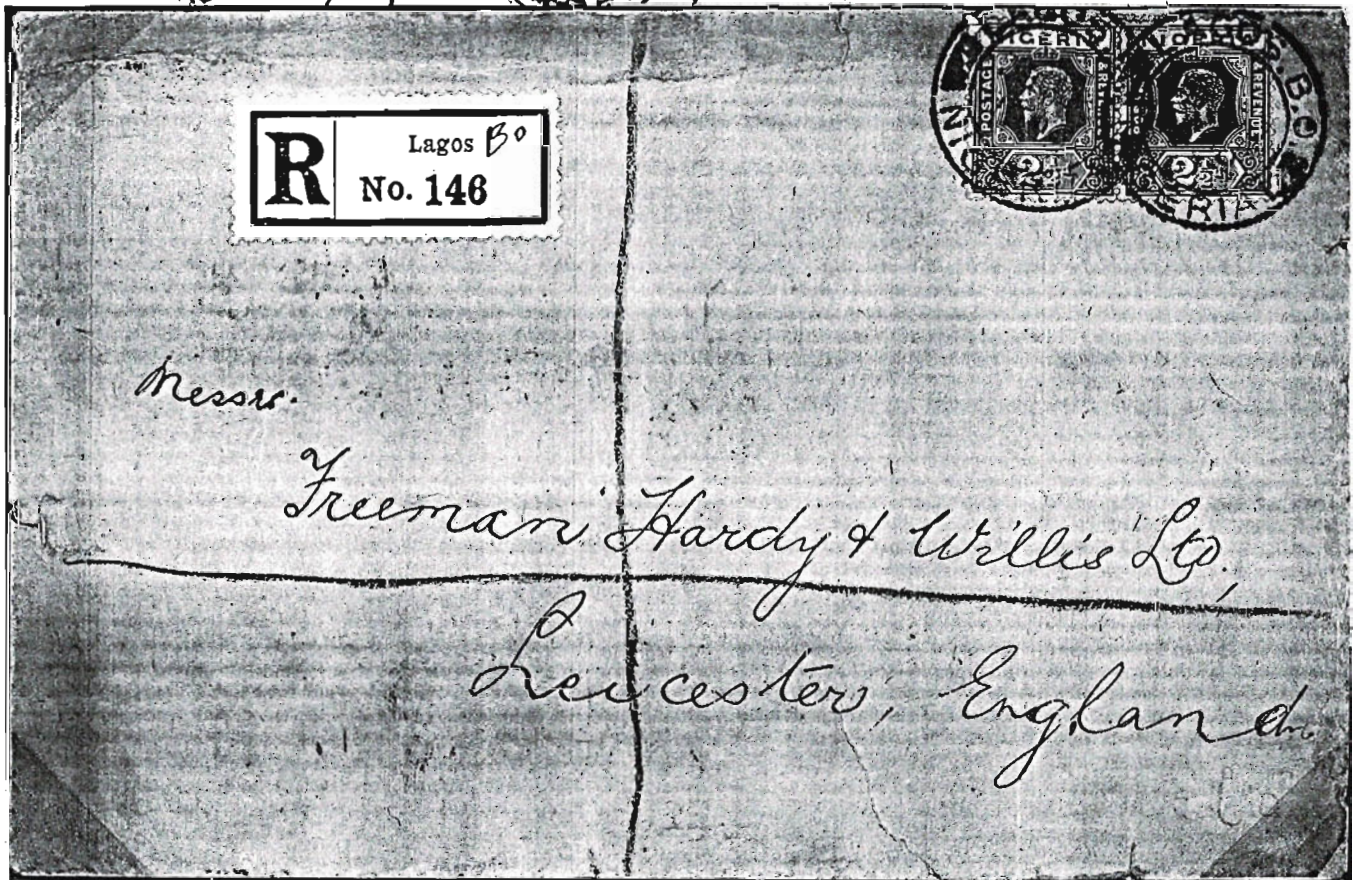 R
Lagos Bo
No. 146
NIGERIA
POSTAGE & REVENUE
2½d
2½d
S.B.O.
Messrs.
Freeman Hardy & Willis Ltd.,
Leicester, England.